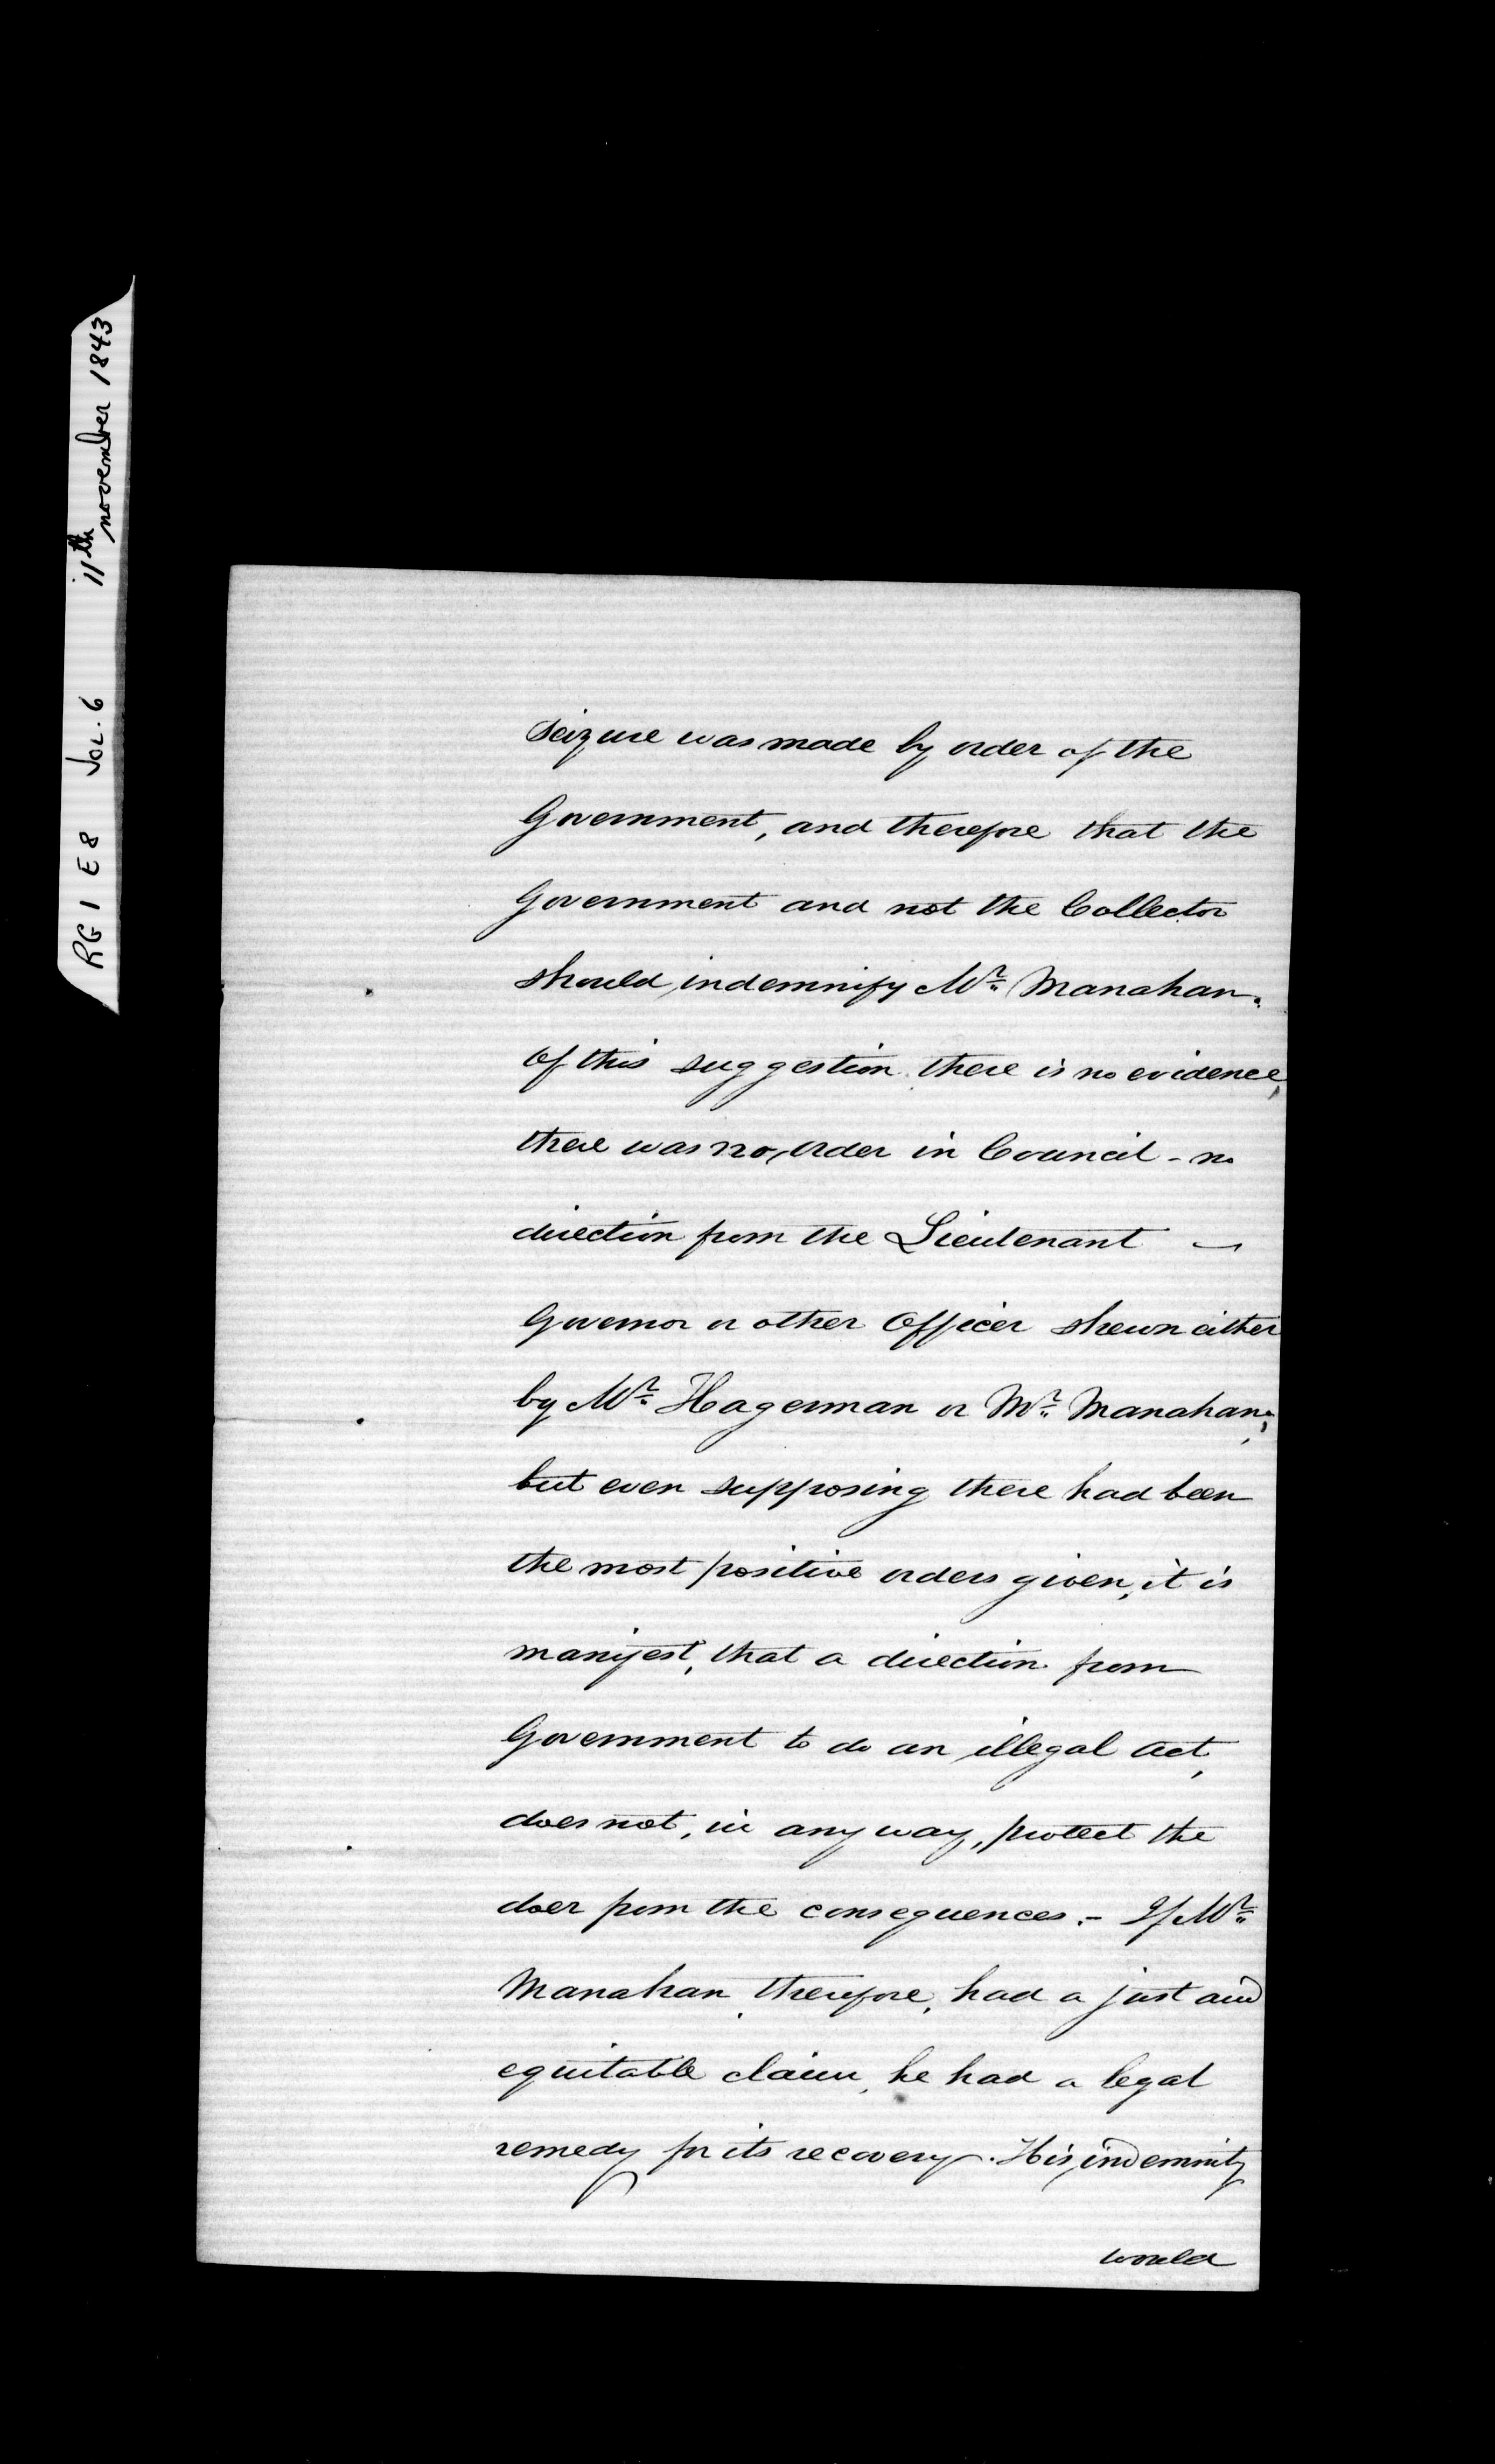 RG 1 E8 Vol. 6 11th november 1843
seizure was made by order of the
Government, and therefore that the
Government and not the Collector
should indemnify Mr. Manahan.
Of this suggestion there is no evidence,
there was no order in Council - no
direction from the Lieutenant —
Governor or other Officer shewn either
by Mr. Hagerman or Mr. Manahan;
but even supposing there had been
the most positive orders given, it is
manifest, that a direction from
Government to do an illegal act,
does not, in any way, protect the
doer from the consequences. - If Mr.
Manahan, therefore, had a just and
equitable claim, he had a legal
remedy for its recovery. His indemnity
would